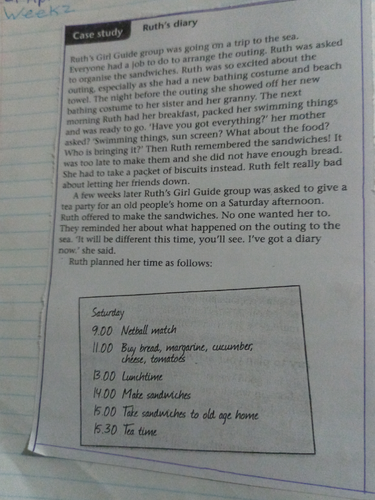 Week 2
Case study Ruth's diary
Ruth's Girl Guide group was going on a trip to the sea.
Everyone had a job to do to arrange the outing. Ruth was asked
to organise the sandwiches. Ruth was so excited about the
outing, especially as she had a new bathing costume and beach
towel. The night before the outing she showed off her new
bathing costume to her sister and her granny. The next
morning Ruth had her breakfast, packed her swimming things
and was ready to go. 'Have you got everything?' her mother
asked? 'Swimming things, sun screen? What about the food?
Who is bringing it?' Then Ruth remembered the sandwiches! It
was too late to make them and she did not have enough bread.
She had to take a packet of biscuits instead. Ruth felt really bad
about letting her friends down.
A few weeks later Ruth's Girl Guide group was asked to give a
tea party for an old people's home on a Saturday afternoon.
Ruth offered to make the sandwiches. No one wanted her to.
They reminded her about what happened on the outing to the
sea. 'It will be different this time, you'll see. I've got a diary
now.' she said.
Ruth planned her time as follows:
Saturday
9.00 Netball match
11.00 Buy bread, margarine, cucumber,
cheese, tomatoes
13.00 Lunchtime
14.00 Make sandwiches
15.00 Take sandwiches to old age home
15.30 Tea time